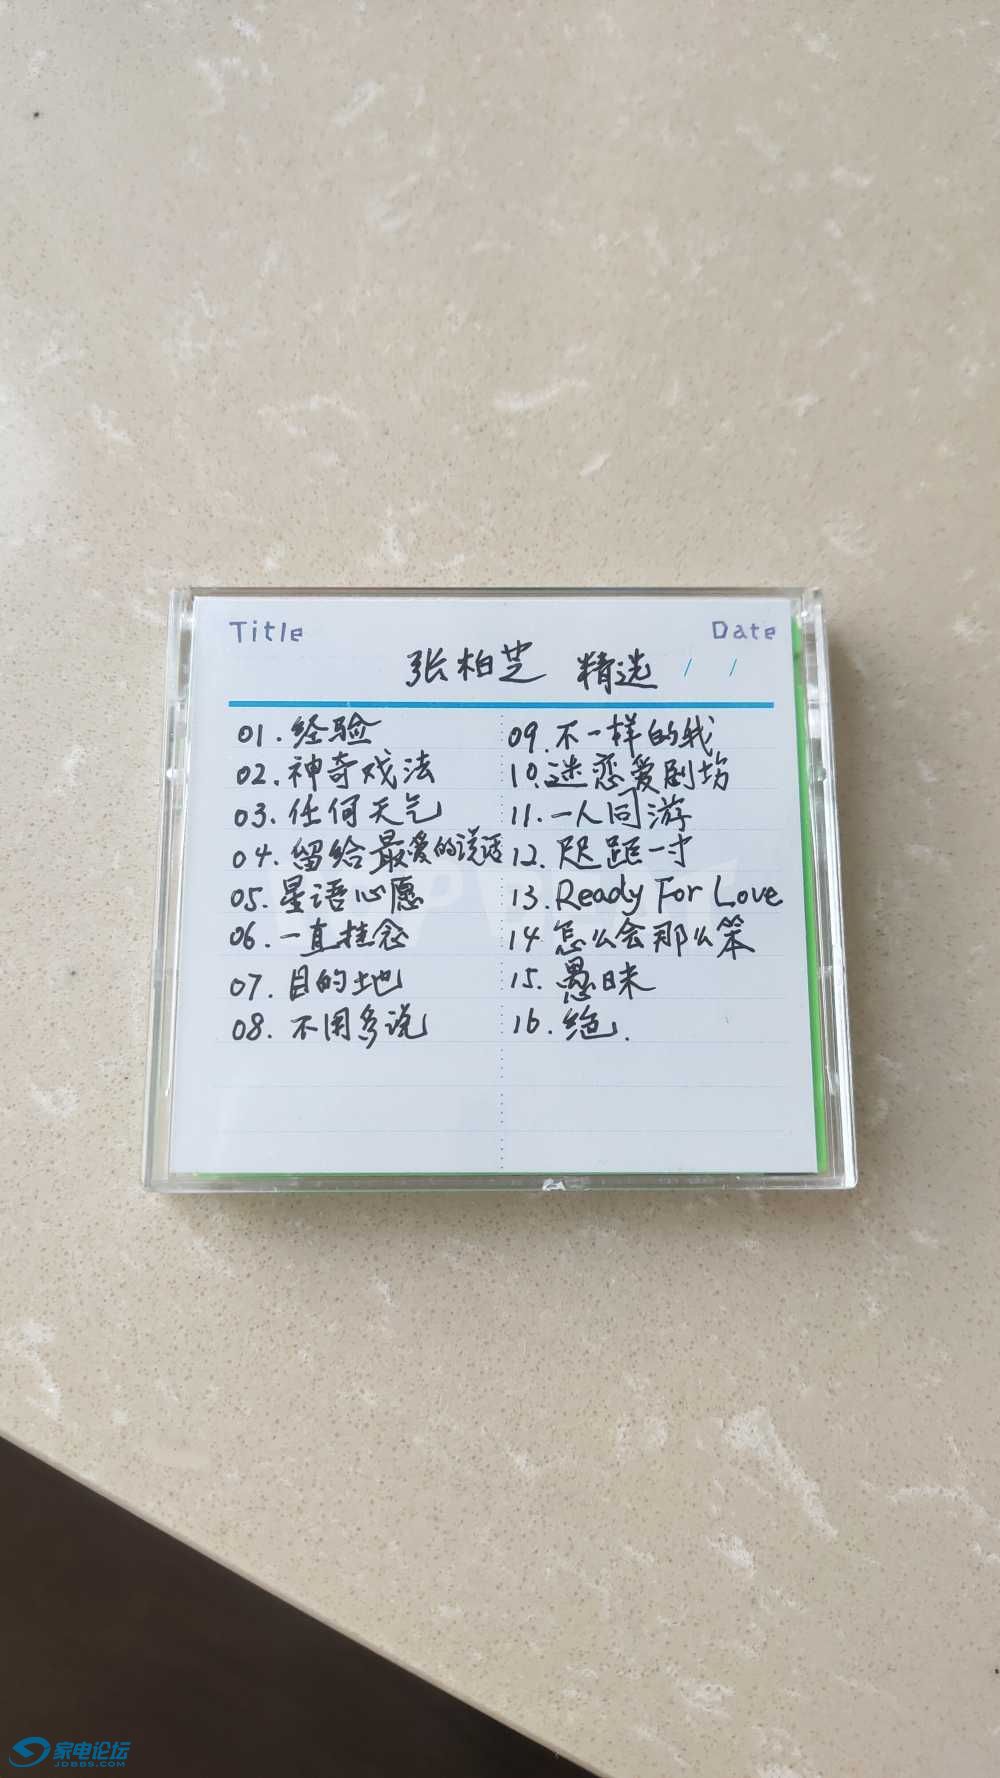 Title
Date
张柏芝 精选 / /
01. 经验
02. 神奇戏法
03. 任何天气
04. 留给最爱的说话
05. 星语心愿
06. 一直挂念
07. 目的地
08. 不用多说
09. 不一样的我
10. 迷恋爱剧场
11. 一人同游
12. 咫距一寸
13. Ready For Love
14 怎么会那么笨
15. 愚昧
16. 绝.
家电论坛
JDBBS.COM